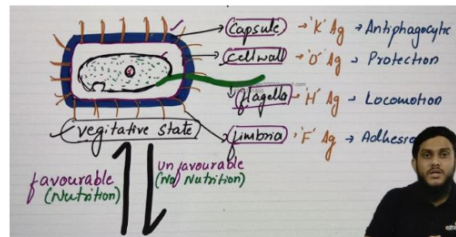 Capsule → 'K' Ag → Antiphagocytic
Cell wall → 'O' Ag → Protection
flagella → 'H' Ag → Locomotion
fimbria → 'F' Ag →
vegitative state
favourable
(Nutrition)
unfavourable
(No Nutrition)